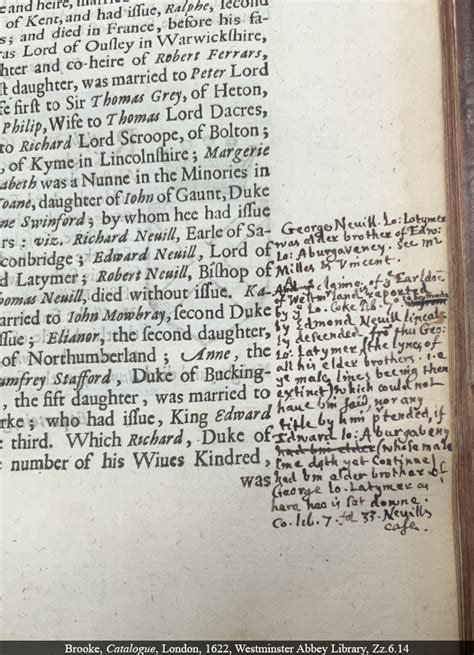 e and heire, married
of Kent, and had issue, Ralphe, second
s; and died in France, before his fa-
as Lord of Ousley in Warwickshire,
hter and co-heire of Robert Ferrars,
st daughter, was married to Peter Lord
fe first to Sir Thomas Grey, of Heton,
Philip, Wife to Thomas Lord Dacres,
to Richard Lord Scroope, of Bolton;
, of Kyme in Lincolnshire; Margerie
abeth was a Nunne in the Minories in
Ioane, daughter of Iohn of Gaunt, Duke
ne Swinford; by whom hee had issue
rs: viz. Richard Neuill, Earle of Sa-
conbridge; Edward Neuill, Lord of
d Latymer; Robert Neuill, Bishop of
homas Neuill, died without issue. Ka-
arried to Iohn Mowbray, second Duke
ssue; Elianor, the second daughter,
of Northumberland; Anne, the
umfrey Stafford, Duke of Bucking-
, the fift daughter, was married to
rke; who had issue, King Edward
e third. Which Rochard, Duke of
e number of his Wiues Kindred,
was
George Neuill Lo: Latymer
was elder brother of Edw:
Lo: Aburgaveney. See mr
Milles & Vincent.
claime of ye Earldōe
of Westmrland reported
by ye Lo. Coke
by Edmond Neuill lineal-
ly descended frō this Geo:
Lo: Latymer, (the lynes of
all his elder brothers .i.e
ye male lines beeing then
extinct) which could not
have bin said, nor any
title by him ptended, if
Edward lo: Aburgaveny
had bin elder (whose male
line doth yet Continue
had bin elder brother of
George lo. Latymer as
here hee is set downe.
Co. lib. 7. fo 33. Nevills
case.
Brooke, Catalogue, London, 1622, Westminster Abbey Library, Zz.6.14